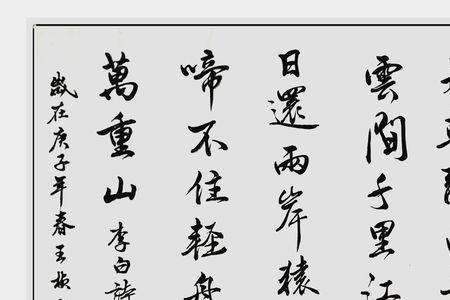 雲間千里江
日還兩岸猿
啼不住輕舟
萬重山李白詩
歲在庚子年春王